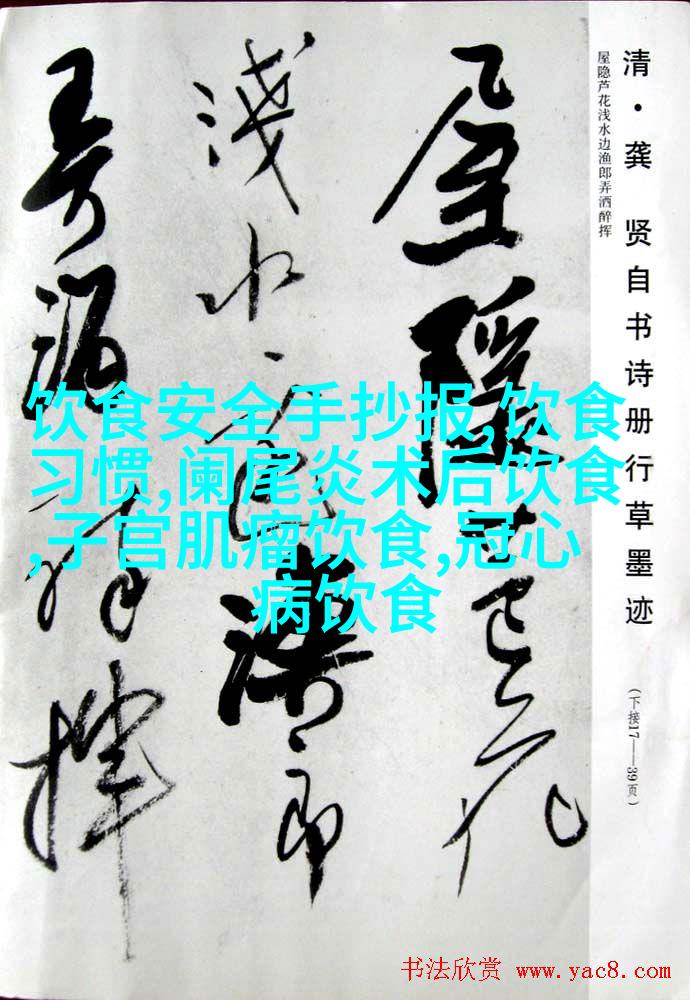 清·龚 贤自书诗册行草墨迹
(下接17——39页)
屋隐芦花浅水边渔郎弄洒醉挥
屋隐芦花
浅水边渔郎
弄酒醉挥
饮食安全手抄报,饮食
习惯,阑尾炎术后饮食
,子宫肌瘤饮食,冠心
病饮食
书法欣赏 www.yac8.com